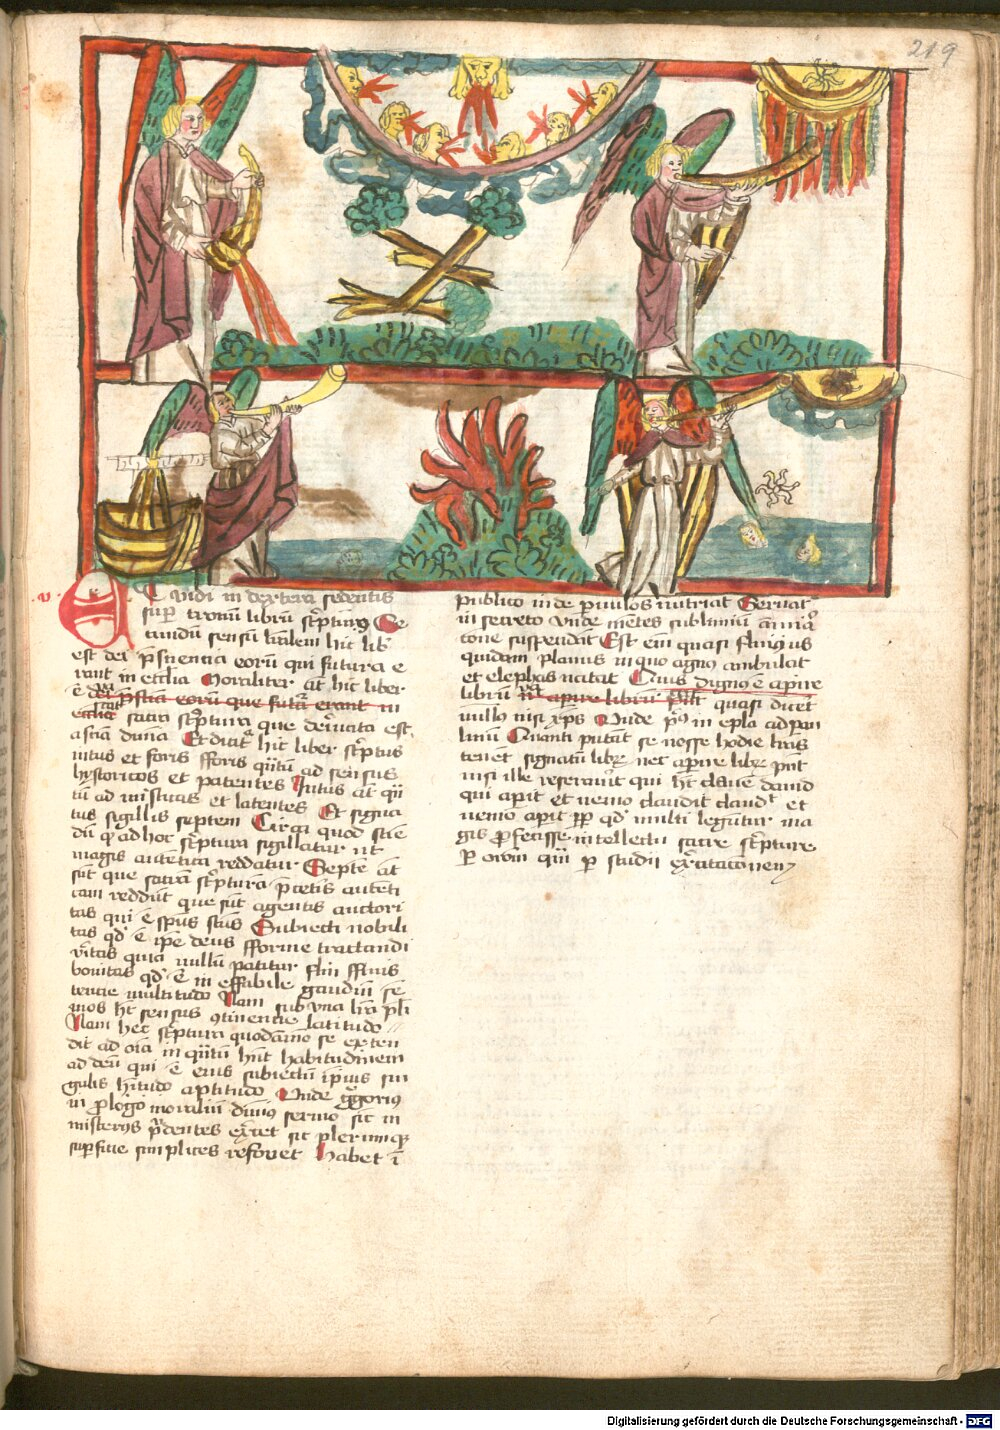 219
.v.
Et vidi in dextera sedentis
sup tronū librū scptum Se
cundū sensū lralem hic lib
est dei pscientia eorū qui futura e
rant in ecclia Moraliter at hic liber
ē dei pscia eorū que futa erant in
ecclia sacra scptura que deriuata est
a sciā diuīa Et dicit hic liber scptus
intus et foris fforis qntū ad sensus
hystoricos et patentes Intus at qn
tū ad misticas et latentes Et signa
tus sigillis septem Circa quod scie
dū qd ad hoc scptura sigillatur ut
magis autētica reddatur Septē at
sūt que sacrā scpturā p cetis autēti
cam reddūt que sūt agentis auctori
tas qui ē spūs scūs Subiecti nobili
tas qd ē ipe deus fforme tractandi
vitas quia nullū patitur flm ffinis
bonitas qd ē in effabile gaudiū se
tentie multitudo Nam sub vna lra pli
mos ht sensus gtinentie latitudo
Nam hec scptura quodāmo se exten
dit ad oia in qntū hnt habitudinem
ad deū qui ē eius subiectū ipius sin
gulis hitudo aptitudo Vnde ggorius
in plogo moraliū diuīus sermo sic in
misterijs pdentes exercet sic plerumqz
supficie simplices refouet Habet ī
publico inde puulos nutriat Seruat
in secreto vnde mētes sublimiū āmira
cone suspendat Est em quasi fluuius
quidam planus in quo agnus ambulat
et elephas natat Quis dignus ē apire
librū quasi dicet
nullus nisi xps Vnde in epla ad pau
linū Quanti putāt se nosse hodie lras
tenēt signatū libr nec apire libr pnt
nisi ille reserauit qui ht clauē dauid
qui apit et nemo claudit claudt et
nemo apit pp qd multi leguntur ma
gis pfecisse in intellectu sacre scpture
p orōm qm p studii exercitaconem
Digitalisierung gefördert durch die Deutsche Forschungsgemeinschaft - DFG